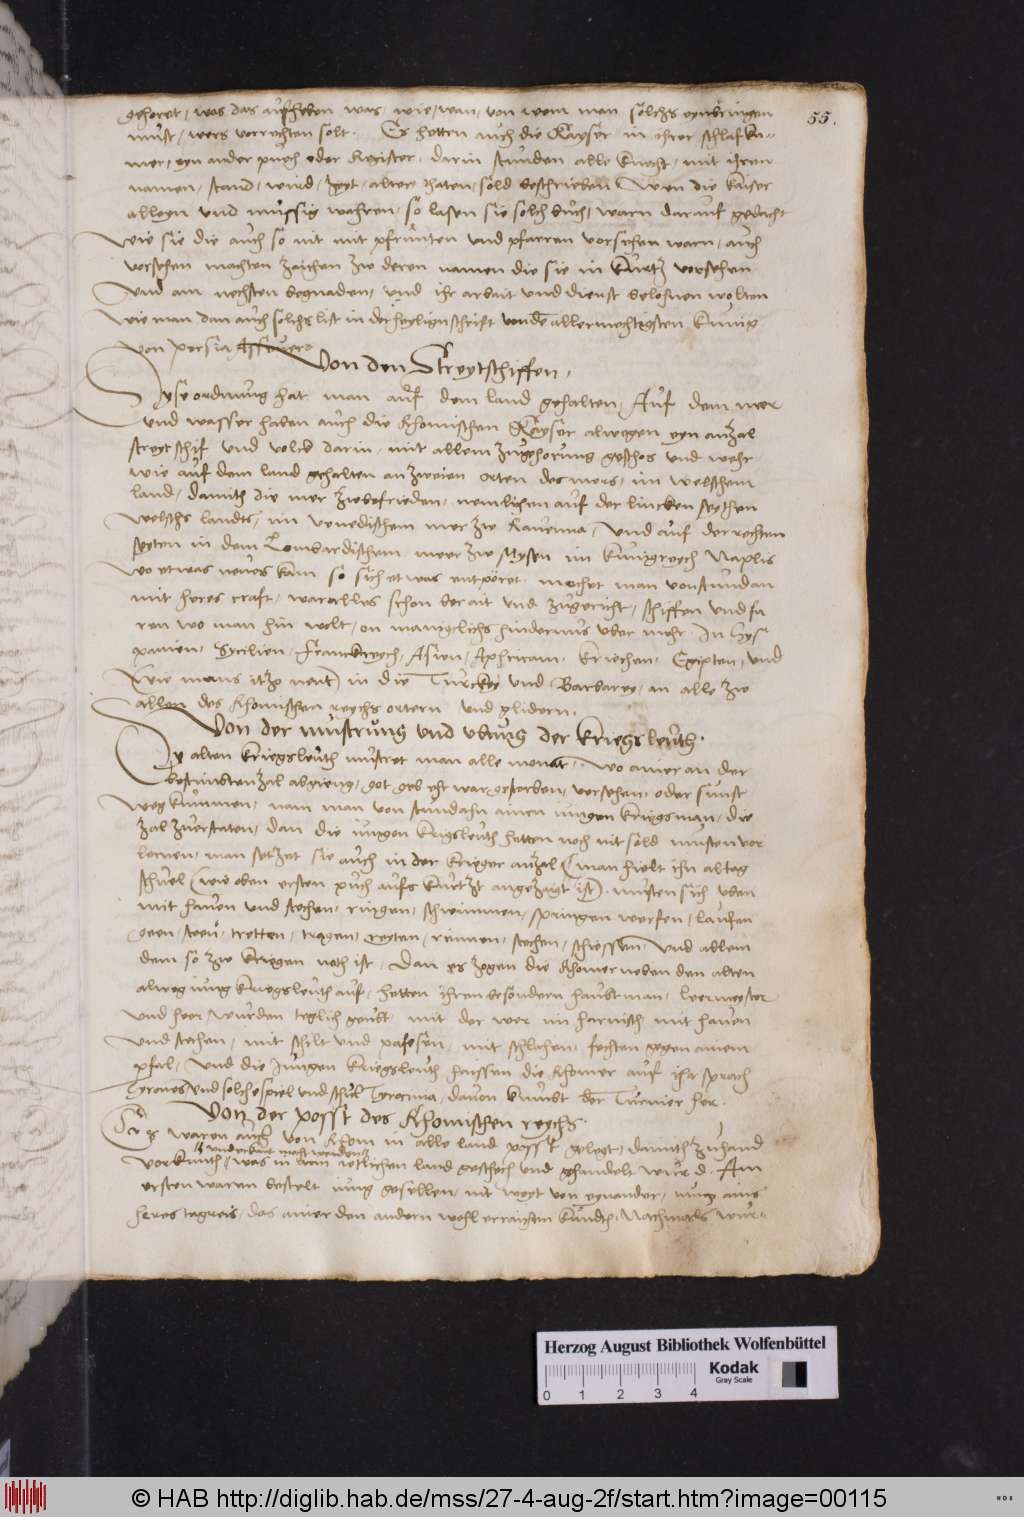 55.
gehoret, was das aufheben was, wie, wan, von wem man solchs eynbringen
must, wers vorrechten solt. Es hetten auch die Kayser in ihrer schlafka-
mer, eyn ander puch oder Register, darin stunden alle knecht, mit ihren
namen, stand, wird, zeyt, alter, thaten, sold beschrieben. Wen die kaiser
alleyn und mussig wahren, so lasen sie solch buch, warn darauf gedacht
wie sie die auch so nit mit pfrunten und pfarren vorsehen warn, auch
vorsehen machten zaichen zw deren namen die sie in kurtz vorsehen
und am nechsten begnaden, und ihr arbait und dienst belohnen wolten
wie man dan auch solchs list in der heyligen schrift von dem allermechtigsten Kunig
von Persia Assuero
Von den Streytschiffen.
Dyse ordnung hat man auf dem land gehalten, Auf dem mer
und wasser haben auch die Rhomischen Kayser alwegen eyn anzal
streyt schif und volck darin, mit allem zugehorung geschos und wehr
wie auf dem land gehalten an zweien orten des mers, im welschem
land, damith die mer zwbefrieden, nemlichen auf der lincken seythen
welschs landts, im venedischem mer zw Ravenna, und auf der rechten
seyten in dem Lombardischem meer zw Mysen im kunigreych Naplis
wo etwas neues kam so sich etwas entpöret, mochet man von stundan
mit heres craft, war alles schon berait und zugericht, schiffen und fa
ren wo man hin wolt, on manigclichs hindernus uber mehr. In Hys
panien, Sycilien, Franckreych, Asien, Aphricam, kriechen, Egipten, und
wie mans itzo nent) in die Turckey und Barbarey, an alle zw
allen des Rhomischen reychs ortern und glidern.
Von der mustrung und ubung der kriegsleuth.
Dy alten kriegsleuth mustret man alle monat, wo ainer an der
bestimbten zal abgieng, got geb ehr war gestorben, versehen oder sunst
weg kummen, nam man von stundahn ainen iungen kriegsman, die
zal zuerstaten, dan die iungen krigsleuth hetten noch nit sold musten vor
lernen, man setzet sie auch in der krieger anzal (man hielt ihn altag
schuel (wie oben ersten puch aufs kurtzt angezaigt ist). musten sich uben
mit hauen und stechen, ringen, schwimmen, springen werfen, laufen
geen, steen, tretten, tragen, reyten, rennen, stechen, schiessen, und allem
dem so zw kriegen noth ist, Dan es zogen die Rhomer neben den alten
alweg iung kriegsleuth auf, hetten ihren besondern haubtman, leermeyster
und heer, wurden teglich geubt, mit der wer im harnisch mit hauen
und stechen, mit schilt und pafesen, mit schlahen, fechten gegen ainem
pfal, und die Jungen kriegsleuth haissen die Rhomer auf ihr sprach
Tyrones und solch spiel und schul Tyrocinia, davon kumbt der Turnier her.
Von der posst des Rhomischen reychs.
Es waren auch von Rhom in alle land posst gelegt, damith zuhand
vorkunth, was in iedlichen land geschech und gehandelt wurd. Am
ersten waren bestelt iung gesellen, nit weyt von eynander, nur ains
heres tagreis, das ainer den andern wohl erraichen kundt, Nachmals wur-
Herzog August Bibliothek Wolfenbüttel
0 1 2 3 4
Kodak
Gray Scale
© HAB http://diglib.hab.de/mss/27-4-aug-2f/start.htm?image=00115